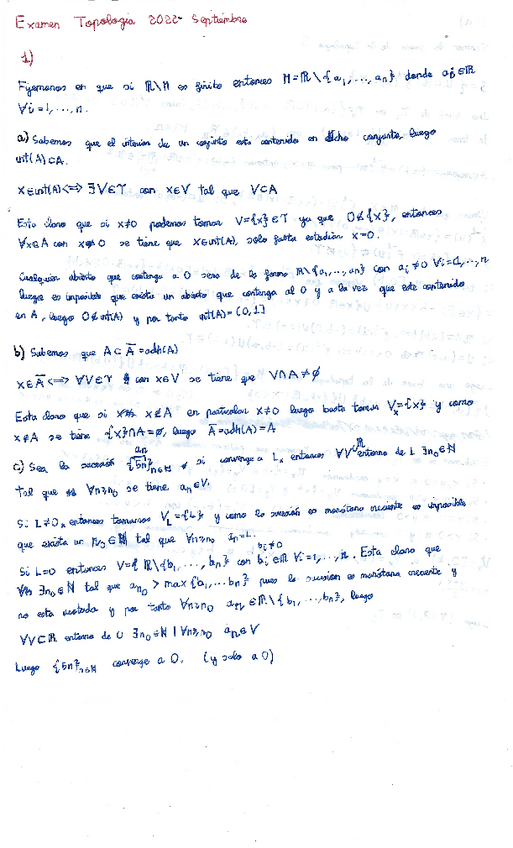 Examen Topología 2022 Septiembre
1)
Fijemonos en que si ℝ\H es finito entonces H=ℝ\{a₁,...,aₙ} donde aᵢ∈ℝ
∀i=1,...,n.
a) Sabemos que el interior de un conjunto esta contenido en dicho conjunto, luego
int(A)⊂A.
x∈int(A)<=>∃V∈T con x∈V tal que V⊂A
Esta claro que si x≠0 podemos tomar V={x}∈T ya que 0∉{x}, entonces
∀x∈A con x≠0 se tiene que x∈int(A), solo falta estudiar x=0.
Cualquier abierto que contenga a 0 sera de la forma ℝ\{a₁,...,aₙ} con aᵢ≠0 ∀i=1,...,n
luego es imposible que exista un abierto que contenga al 0 y a la vez que este contenido
en A, luego 0∉int(A) y por tanto int(A)=(0,1]
b) Sabemos que A⊂Ā=adh(A)
x∈Ā<=>∀V∈T con x∈V se tiene que V∩A≠∅
Esta claro que si x∉A en particular x≠0 luego basta tomar Vₓ={x} y como
x∉A se tiene {x}∩A=∅, luego Ā=adh(A)=A
c) Sea la sucesión {5n}ₙ∈ℕ, aₙ si converge a L, entonces ∀V entorno de L ∃n₀∈ℕ
tal que ∀n≥n₀ se tiene aₙ∈V.
Si L≠0, entonces tomamos V_L={L} y como la sucesión es monótona creciente es imposible
que exista un n₀∈ℕ tal que ∀n≥n₀ aₙ=L.
Si L=0 entonces V=ℝ\{b₁,...,bₙ} con bᵢ∈ℝ bᵢ≠0 ∀i=1,...,n. Esta claro que
∃n₀∈ℕ tal que aₙ₀>max{b₁,...bₙ} pues la sucesión es monótona creciente y
no esta acotada y por tanto ∀n≥n₀ aₙ∈ℝ\{b₁,...,bₙ}, luego
∀V⊂ℝ entorno de 0 ∃n₀∈ℕ | ∀n≥n₀ aₙ∈V
Luego {5n}ₙ∈ℕ converge a 0. (y solo a 0)